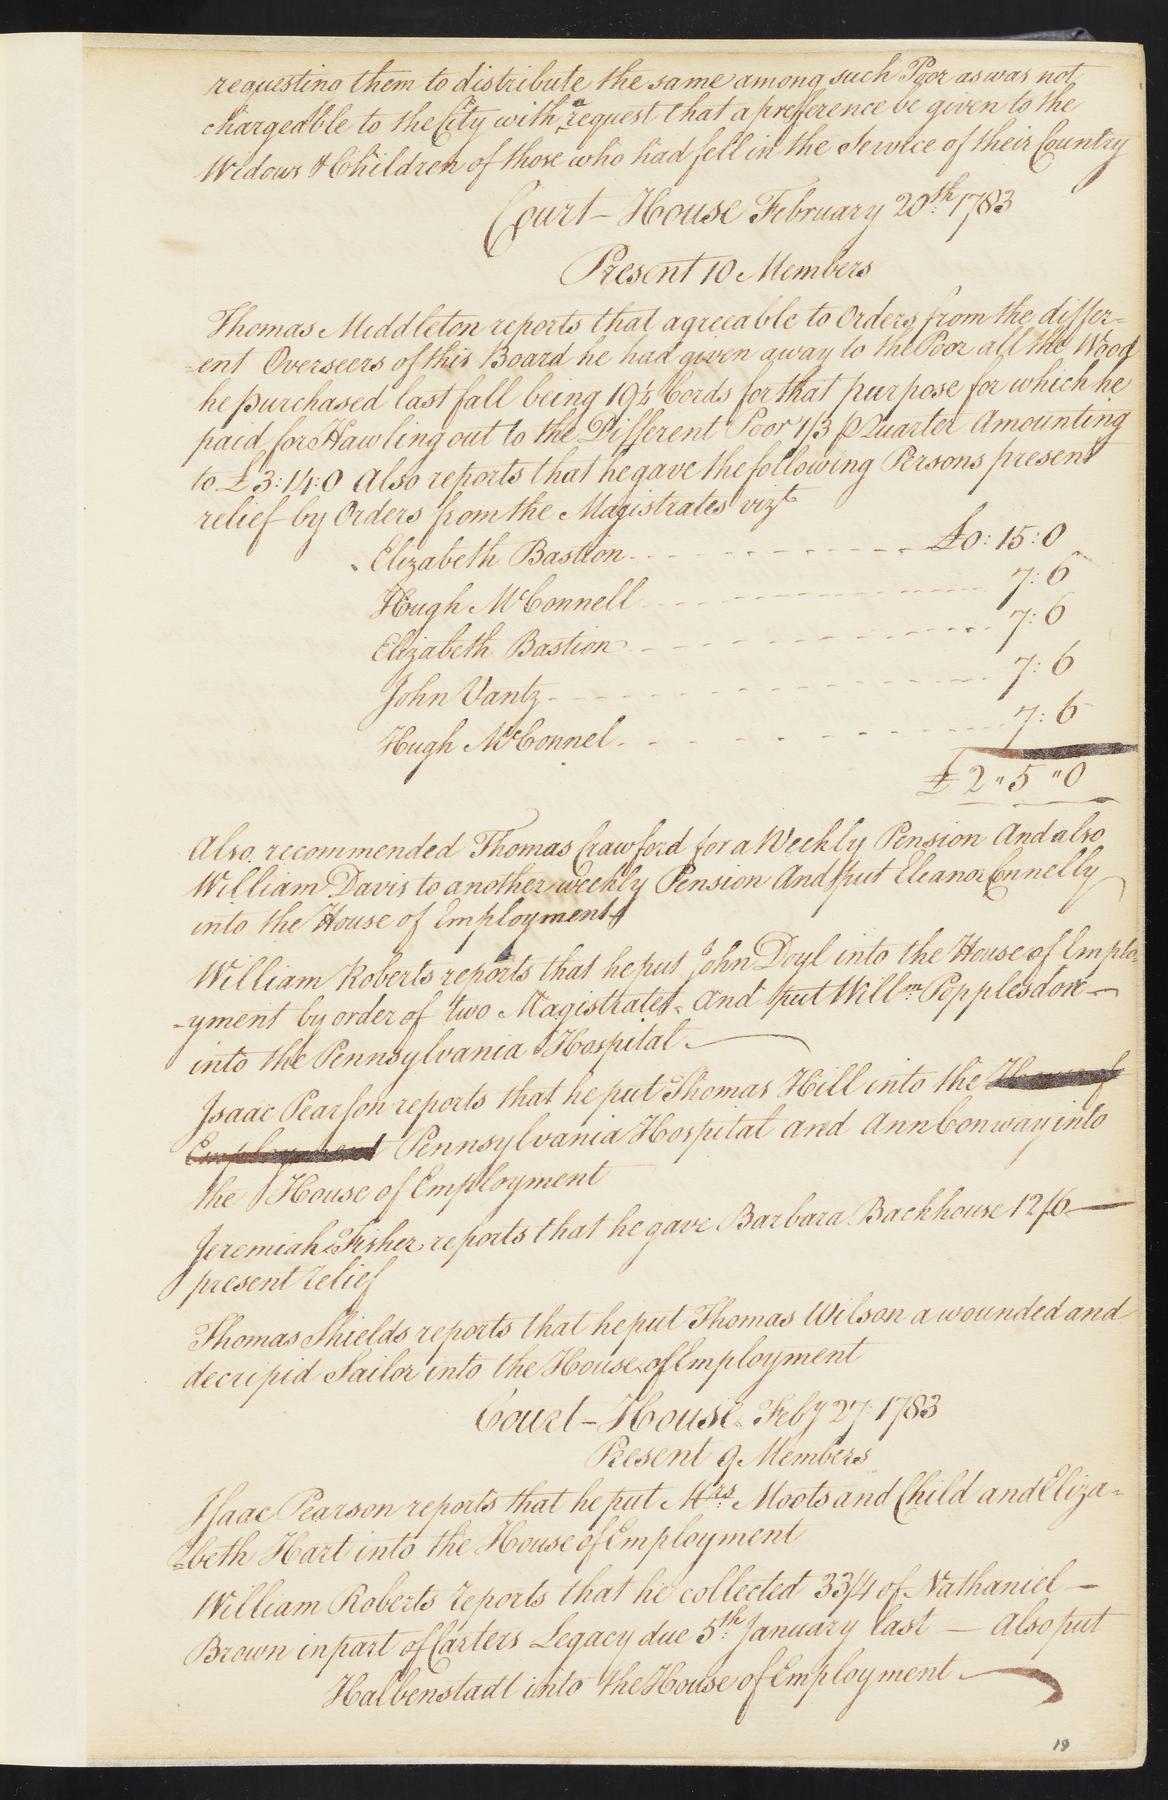 requesting them to distribute the same among such Poor as was not
chargeable to the City with a request that a prefference be given to the
Widows & Children of those who had fell in the Service of their Country
Court-House February 20th: 1783
Present 10 Members
Thomas Middleton reports that agreeable to Orders from the differ=
=ent Overseers of this Board he had given away to the Poor all the Wood
he purchased last fall being 19½ Cords for that purpose for which he
paid for Hawling out to the Different Poor 1/3 ⅌ Quarter Amounting
to £3:14:0 Also reports that he gave the following Persons present
relief by Orders from the Magistrates vizt
Elizabeth Bastion £0:15:0
Hugh McConnell 7:6
Elizabeth Bastion 7:6
John Vantz 7:6
Hugh McConnel 7:6
£2"5"0
Also recommended Thomas Crawford for a Weekly Pension And also
William Davis to another weekly Pension And put Eleanor Connelly
into the House of Employment
William Roberts reports that he put John Doyl into the House of Emplo=
=yment by order of two Magistrates. And put Willm. Popplesdore —
into the Pennsylvania Hospital
Isaac Pearson reports that he put Thomas Hill into the House of
Employment Pennsylvania Hospital and Ann Conway into
the House of Employment
Jeremiah Fisher reports that he gave Barbara Backhouse 12/6 —
present relief
Thomas Shields reports that he put Thomas Wilson a wounded and
decripid Sailor into the House of Employment
Court-House Feby 27: 1783
Present 9 Members
Isaac Pearson reports that he put Mrs: Moots and Child and Eliza=
=beth Hart into the House of Employment
William Roberts reports that he collected 33/4 of Nathaniel —
Brown in part of Carters Legacy due 5th: January last — Also put
Halbenstadt into the House of Employment
19